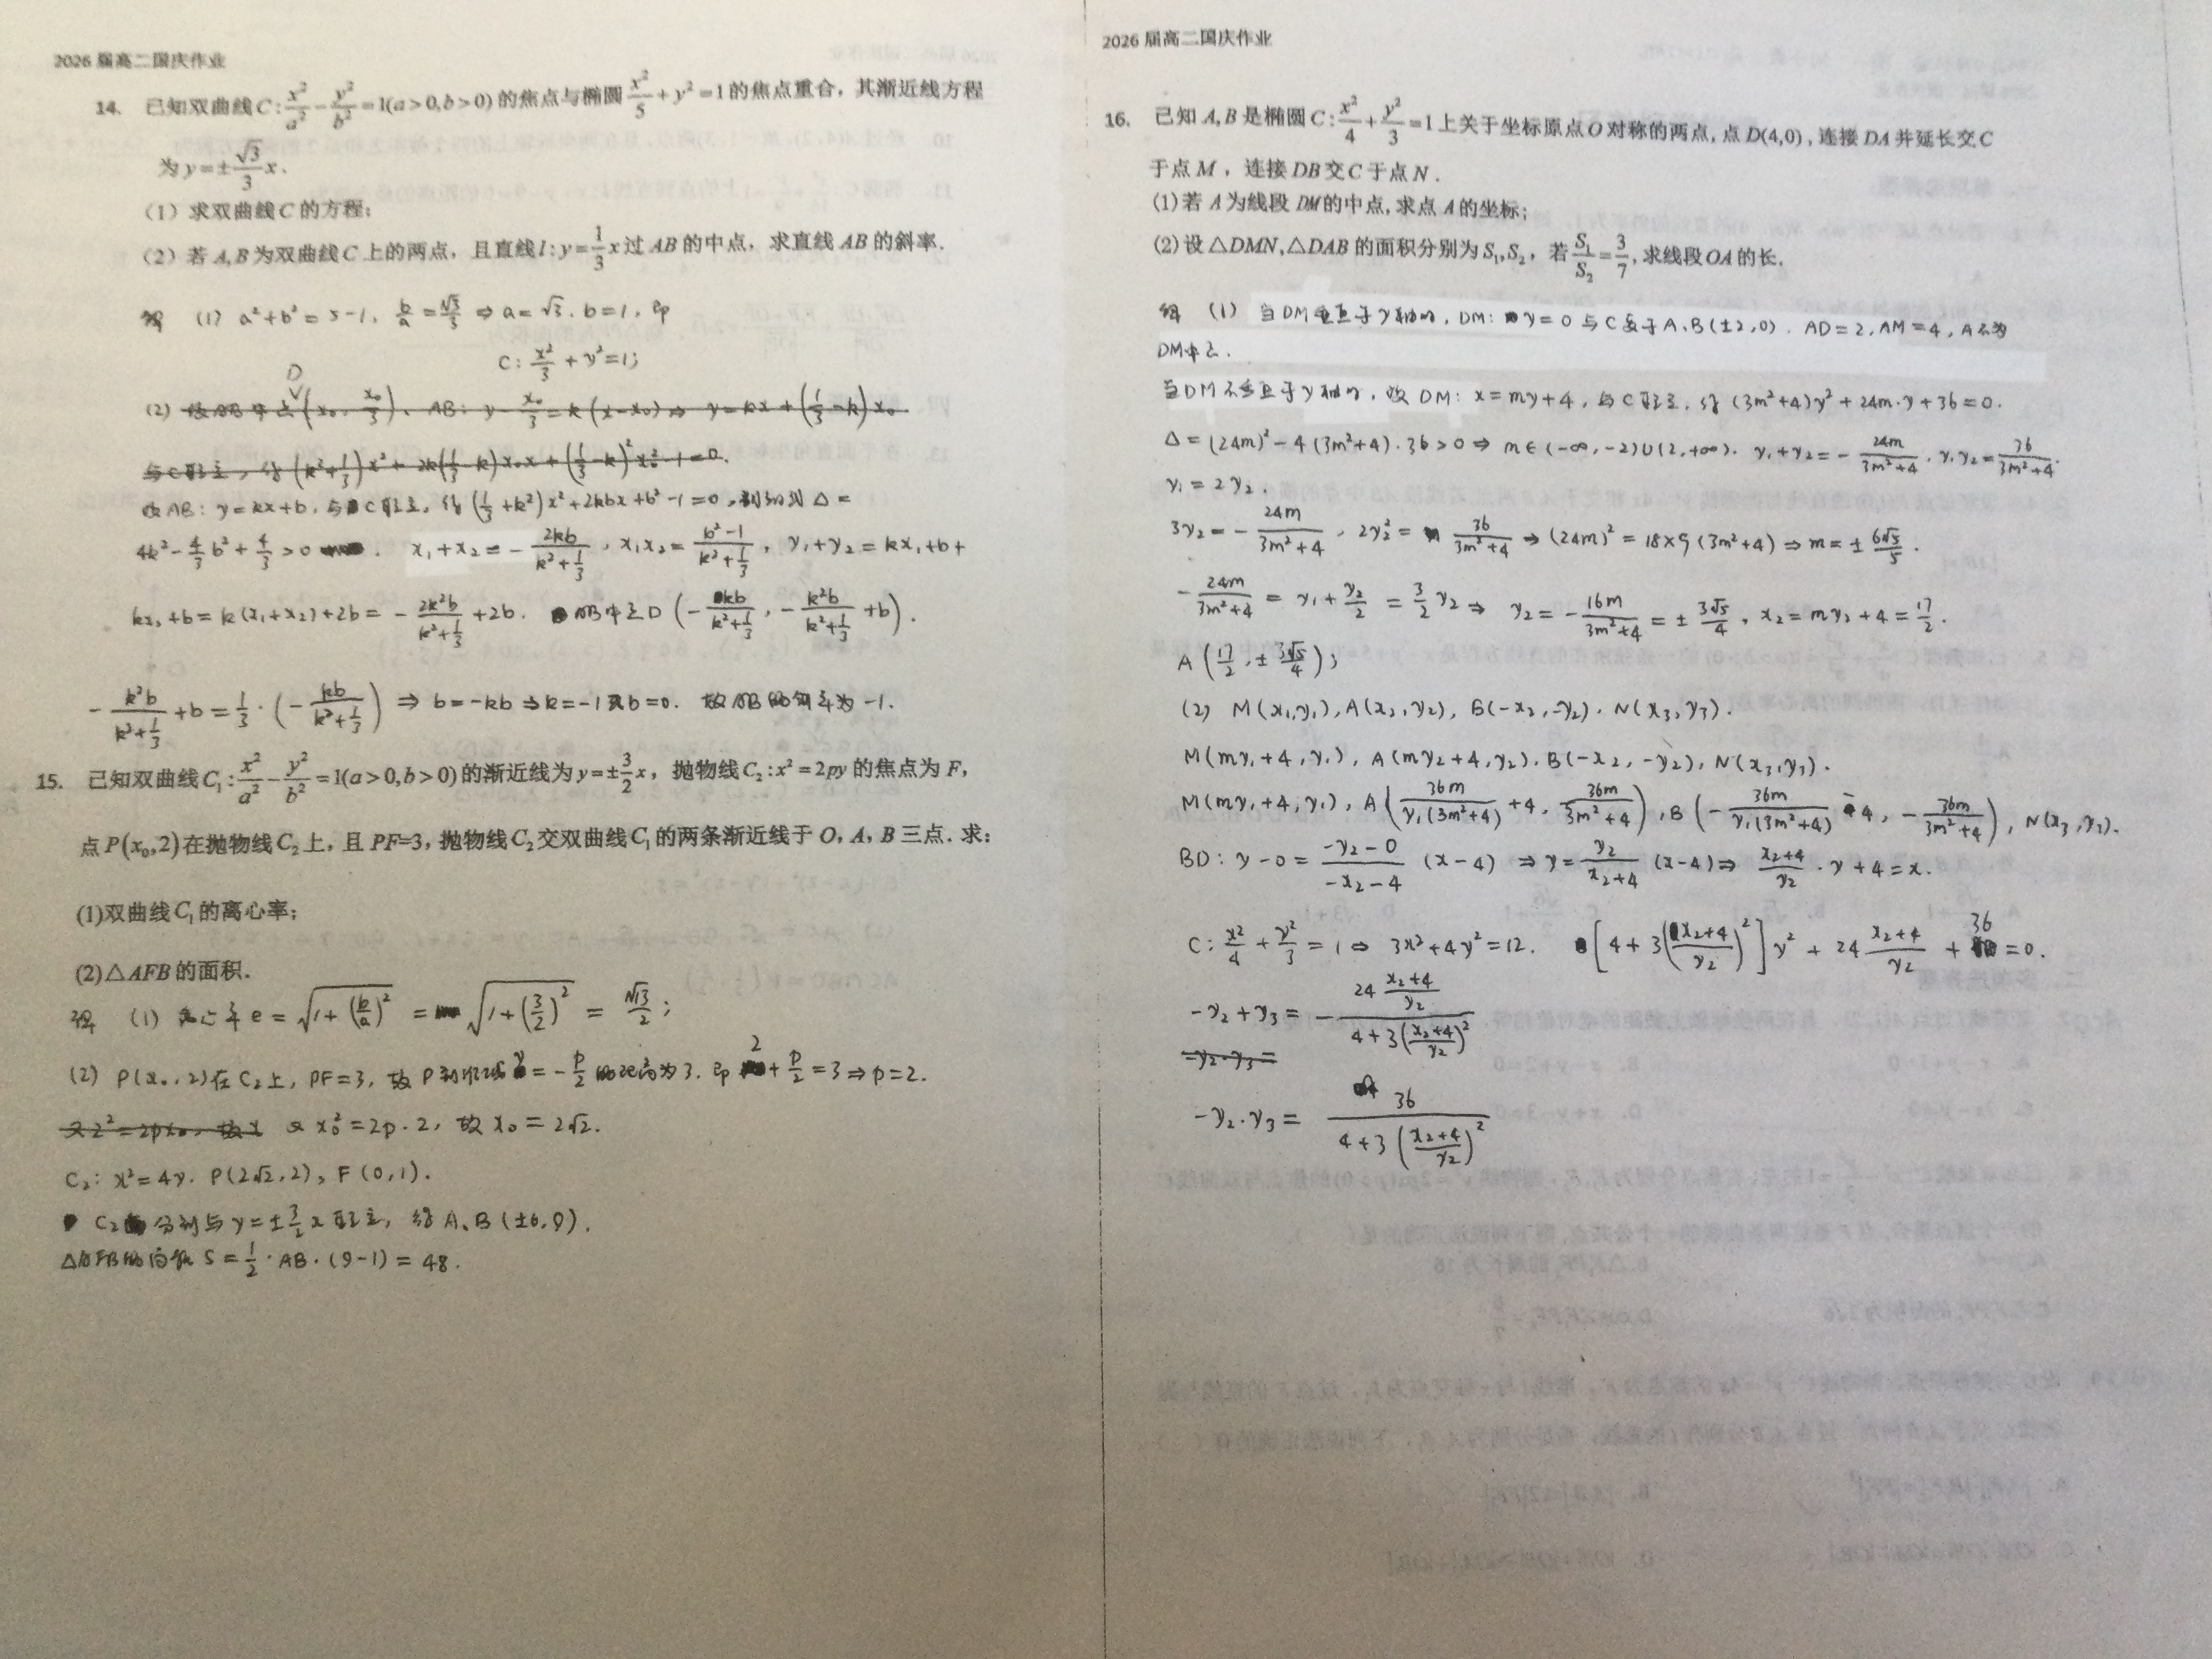 2026届高二国庆作业
14. 已知双曲线C:x²/a²-y²/b²=1(a>0,b>0)的焦点与椭圆x²/5+y²=1的焦点重合，其渐近线方程
为y=±√3/3 x.
（1）求双曲线C的方程；
（2）若A,B为双曲线C上的两点，且直线l:y=1/3 x过AB的中点，求直线AB的斜率.
解 (1) a²+b²=5-1, b/a=√3/3 ⇒ a=√3. b=1, 即
C: x²/3+y²=1;
D
(2) 设AB中点(x₀, x₀/3), AB: y-x₀/3=k(x-x₀) ⇒ y=kx+(1/3-k)x₀
与C联立, 得(k²+1/3)x²+2k(1/3-k)x₀x+(1/3-k)²x₀²-1=0.
设AB: y=kx+b, 与C联立, 得(1/3+k²)x²+2kbx+b²-1=0, 判别式Δ=
4k²-4/3 b²+4/3>0. x₁+x₂=-2kb/(k²+1/3), x₁x₂=(b²-1)/(k²+1/3), y₁+y₂=kx₁+b+
kx₂+b=k(x₁+x₂)+2b=-2k²b/(k²+1/3)+2b. AB中点D(-kb/(k²+1/3), -k²b/(k²+1/3)+b).
-k²b/(k²+1/3)+b=1/3·(-kb/(k²+1/3)) ⇒ b=-kb ⇒ k=-1或b=0. 故AB的斜率为-1.
15. 已知双曲线C₁:x²/a²-y²/b²=1(a>0,b>0)的渐近线为y=±3/2 x，抛物线C₂:x²=2py的焦点为F，
点P(x₀,2)在抛物线C₂上，且PF=3，抛物线C₂交双曲线C₁的两条渐近线于O，A，B三点．求：
(1)双曲线C₁的离心率；
(2)△AFB的面积．
解 (1) 离心率e=√(1+(b/a)²)=√(1+(3/2)²)=√13/2;
(2) P(x₀,2)在C₂上, PF=3, 故P到准线y=-p/2的距离为3. 即2+p/2=3⇒p=2.
又2²=2px₀, 故x 又x₀²=2p·2, 故x₀=2√2.
C₂: x²=4y. P(2√2,2), F(0,1).
C₂分别与y=±3/2 x联立, 得A、B(±6,9).
△AFB的面积S=1/2·AB·(9-1)=48.
2026届高二国庆作业
16. 已知A,B是椭圆C:x²/4+y²/3=1上关于坐标原点O对称的两点,点D(4,0),连接DA并延长交C
于点M，连接DB交C于点N．
(1)若A为线段DM的中点,求点A的坐标；
(2)设△DMN,△DAB的面积分别为S₁,S₂，若S₁/S₂=3/7,求线段OA的长.
解 (1) 当DM垂直于y轴时, DM: y=0与C交于A、B(±2,0). AD=2, AM=4, A不为
DM中点.
当DM不垂直于y轴时, 设DM: x=my+4, 与C联立, 得(3m²+4)y²+24m·y+36=0.
Δ=(24m)²-4(3m²+4)·36>0⇒m∈(-∞,-2)∪(2,+∞). y₁+y₂=-24m/(3m²+4), y₁y₂=36/(3m²+4).
y₁=2y₂.
3y₂=-24m/(3m²+4), 2y₂²=36/(3m²+4)⇒(24m)²=18×9(3m²+4)⇒m=±6√5/5.
-24m/(3m²+4)=y₁+y₂/2=3/2 y₂⇒y₂=-16m/(3m²+4)=±3√5/4, x₂=my₂+4=17/2.
A(17/2, ±3√5/4);
(2) M(x₁,y₁), A(x₂,y₂), B(-x₂,-y₂), N(x₃,y₃).
M(my₁+4,y₁), A(my₂+4,y₂), B(-x₂,-y₂), N(x₃,y₃).
M(my₁+4,y₁), A(36m/(y₁(3m²+4))+4, 36m/(3m²+4)), B(-36m/(y₁(3m²+4))-4, -36m/(3m²+4)), N(x₃,y₃).
BD: y-0=(-y₂-0)/(-x₂-4) (x-4) ⇒y=y₂/(x₂+4) (x-4)⇒(x₂+4)/y₂·y+4=x.
C: x²/4+y²/3=1⇒3x²+4y²=12. [4+3((x₂+4)/y₂)²]y²+24 (x₂+4)/y₂+36=0.
-y₂+y₃=-24 (x₂+4)/y₂/(4+3((x₂+4)/y₂)²)
-y₂·y₃=
-y₂·y₃=36/(4+3((x₂+4)/y₂)²)